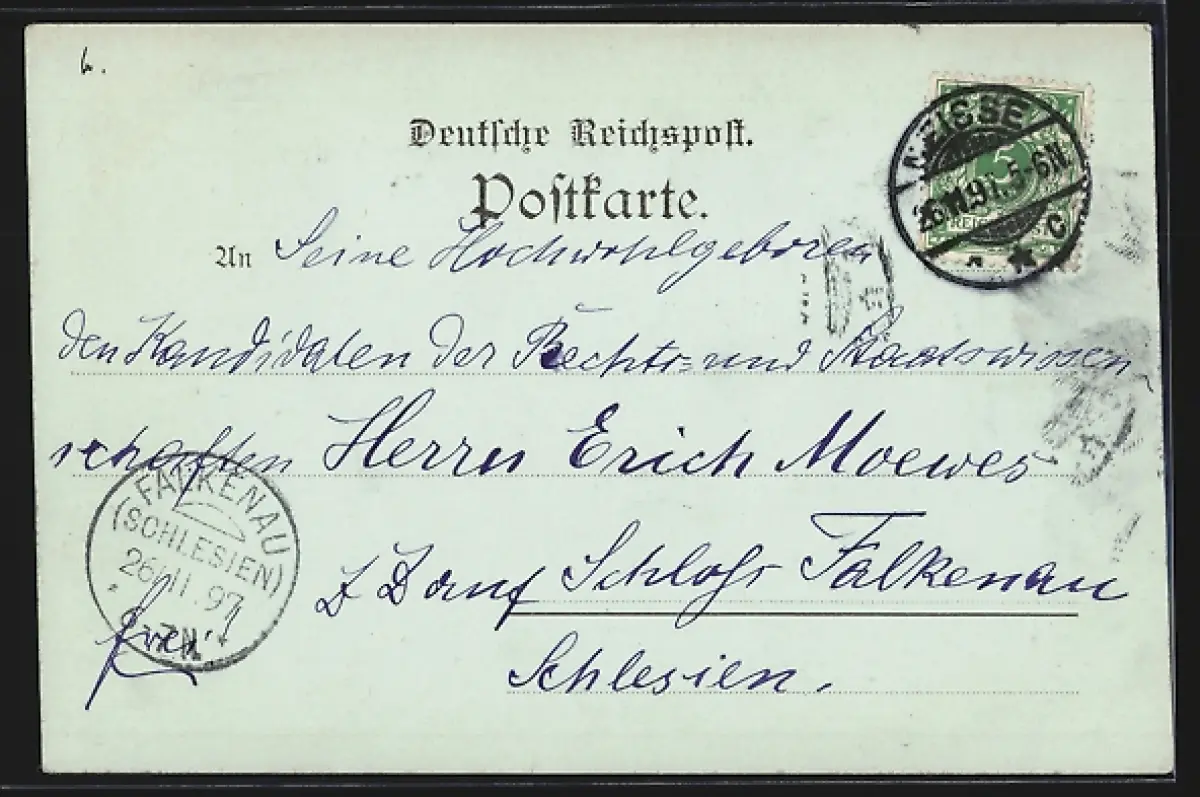 Deutsche Reichspost.
Postkarte.
An Seine Hochwohlgeboren
den Kandidaten der Rechts- und Staatswissen-
schaften Herrn Erich Moewes
Z Z auf Schloss Falkenau
Schlesien.
frei!
NEISSE
5-6N.
C
5
REICHSPOST
FALKENAU
(SCHLESIEN)
26/11.97